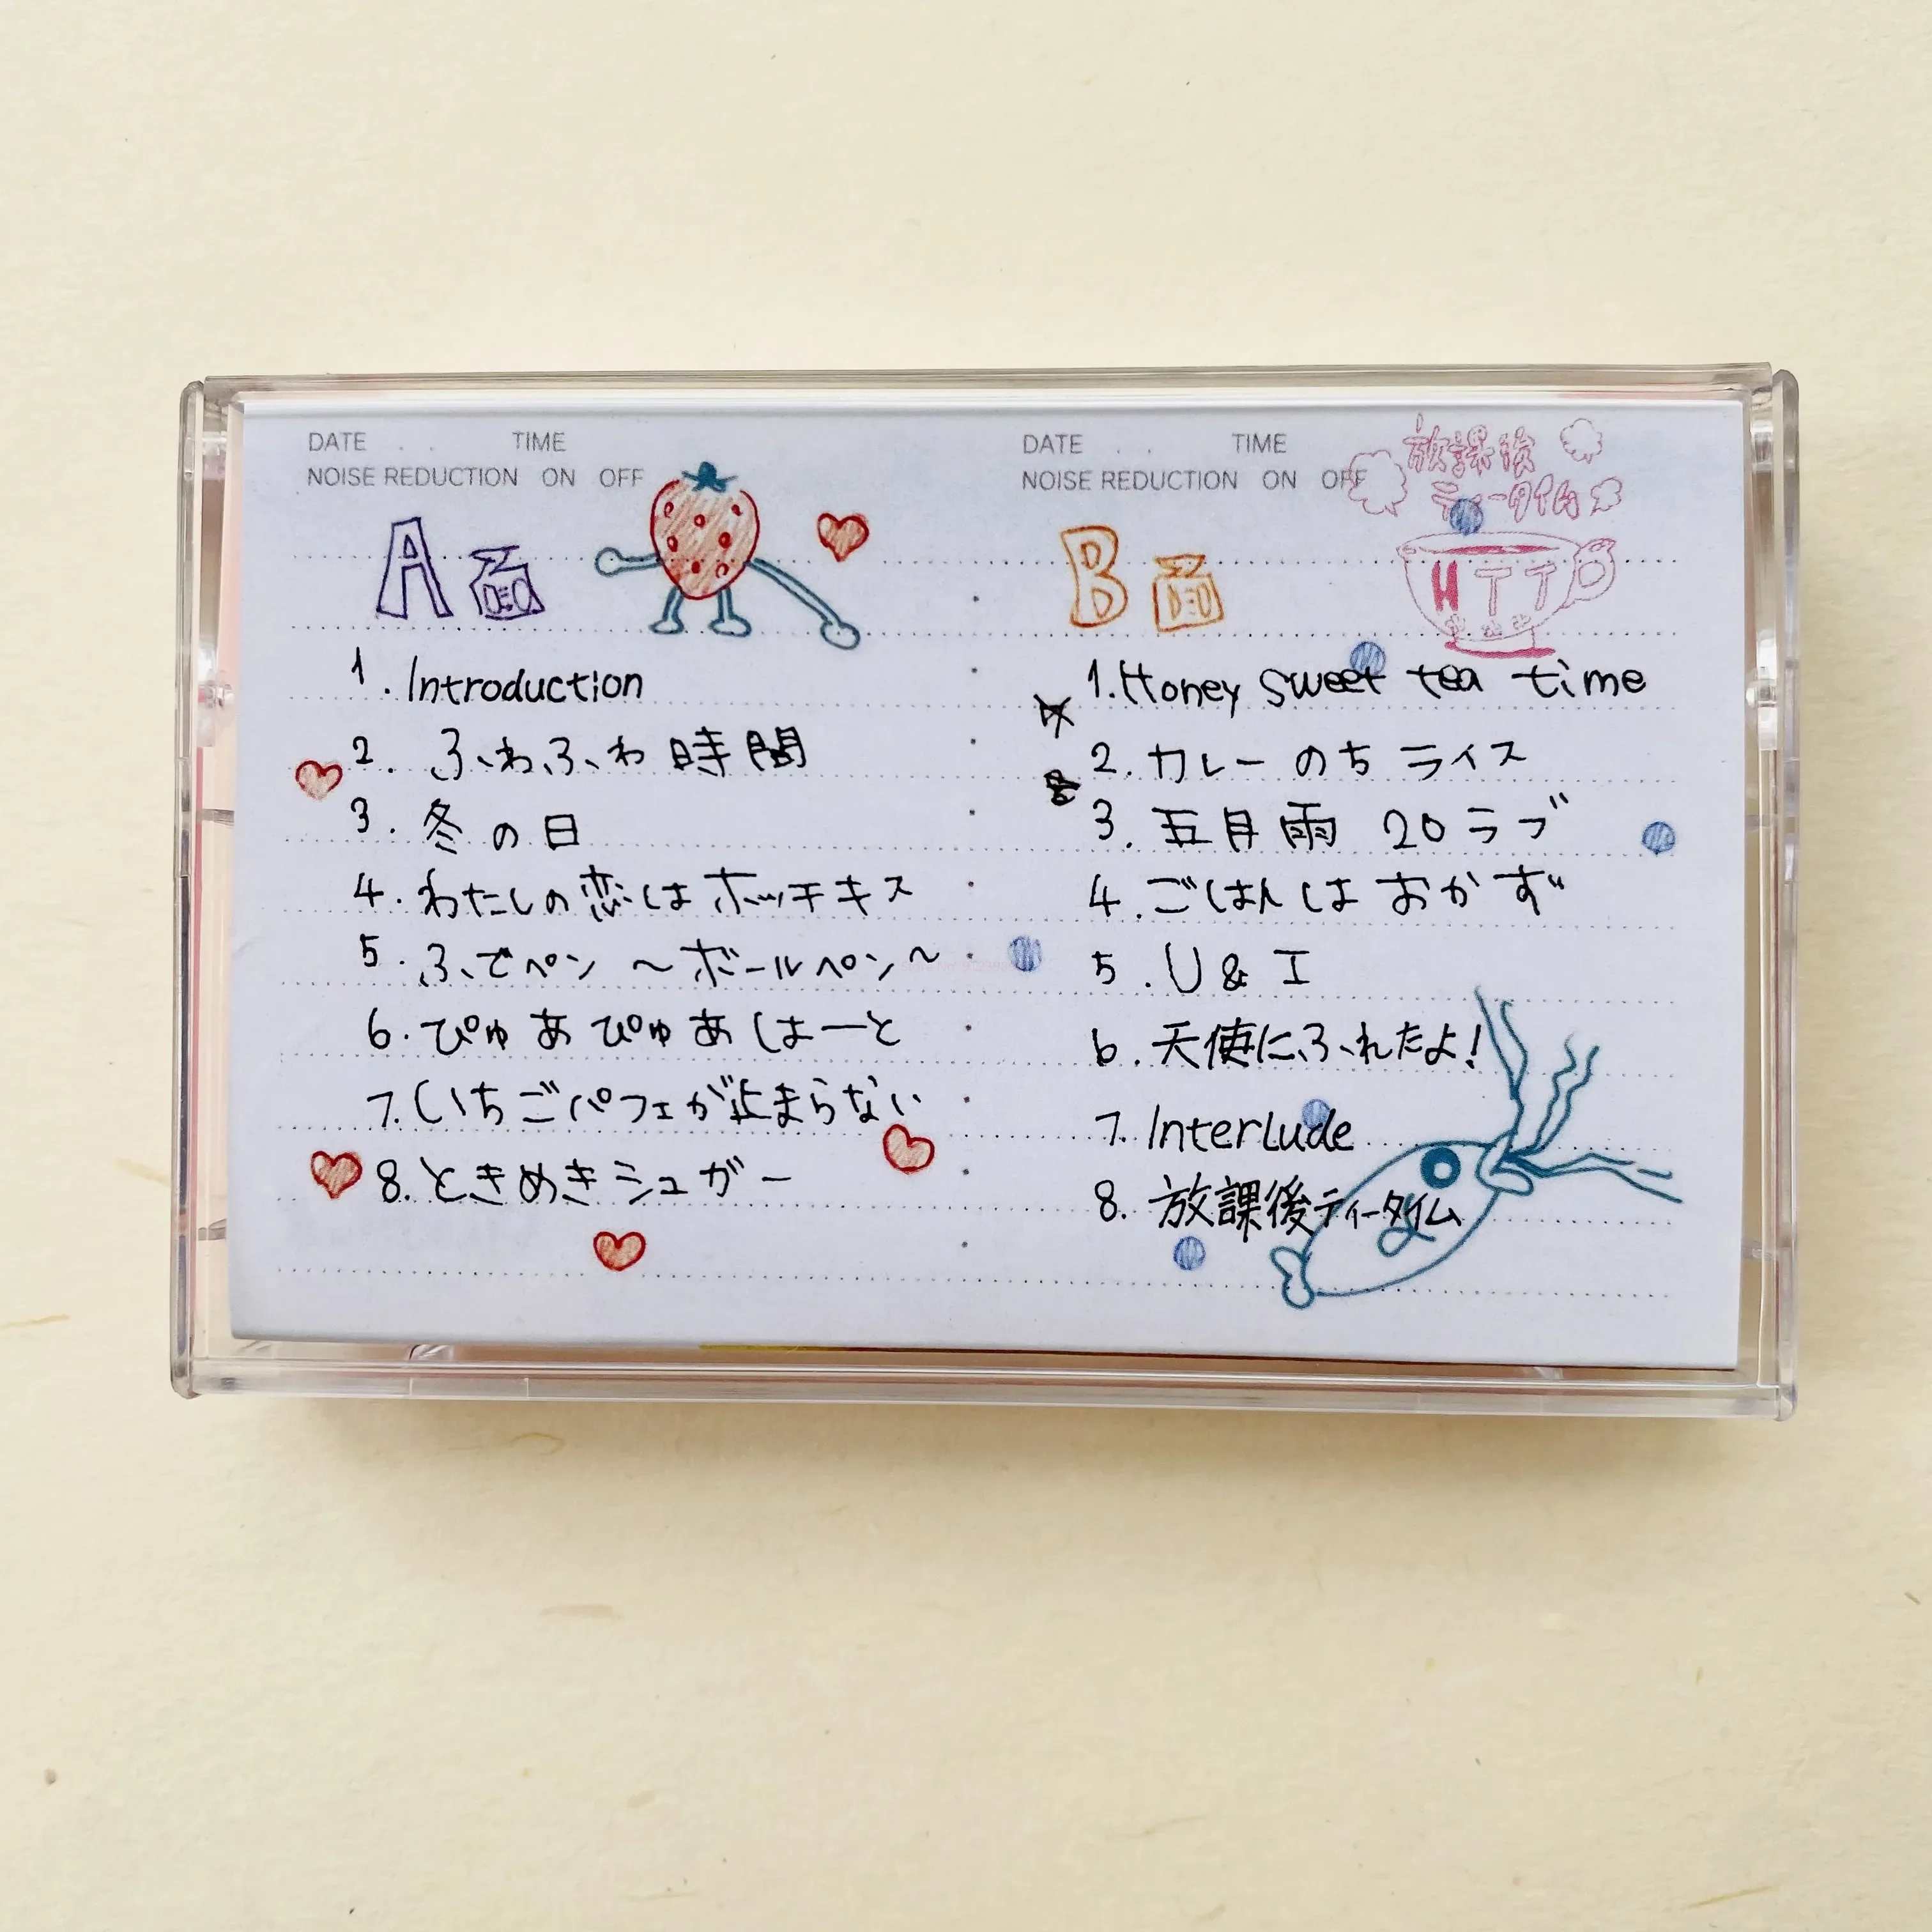 DATE . . TIME
NOISE REDUCTION ON OFF
A面
1. Introduction
2. ふわふわ時間
3. 冬の日
4. わたしの恋はホッチキス
5. ふでペン ~ボールペン~
6. ぴゅあぴゅあはーと
7. いちごパフェが止まらない
8. ときめきシュガー
DATE . . TIME
NOISE REDUCTION ON OFF
放課後
ティータイム
HTT
B面
1. Honey sweet tea time
2. カレーのちライス
3. 五月雨20ラブ
4. ごはんはおかず
5. U & I
6. 天使にふれたよ!
7. Interlude
8. 放課後ティータイム